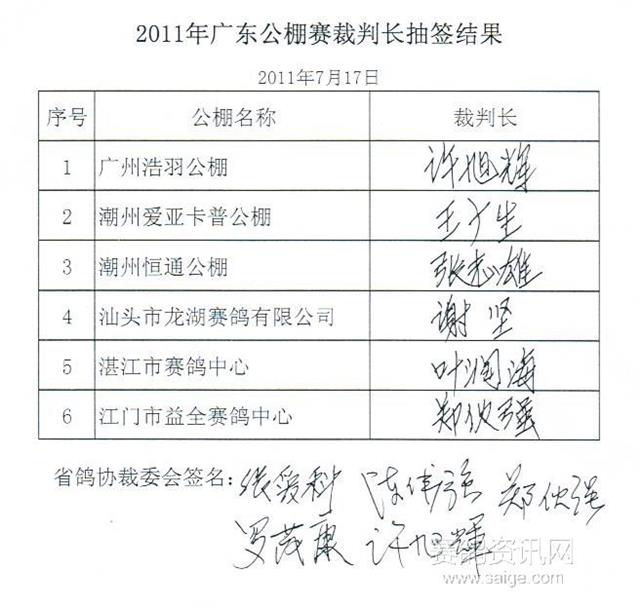 2011年广东公棚赛裁判长抽签结果
2011年7月17日
序号 公棚名称 裁判长
1 广州浩羽公棚 许旭辉
2 潮州爱亚卡普公棚 王少生
3 潮州恒通公棚 张志雄
4 汕头市龙湖赛鸽有限公司 谢坚
5 湛江市赛鸽中心 叶润海
6 江门市益全赛鸽中心 郑伙强
省鸽协裁委会签名: 张爱科 陈伟强 郑伙强
罗茂康 许旭辉
赛鸽资讯网
www.saige.com